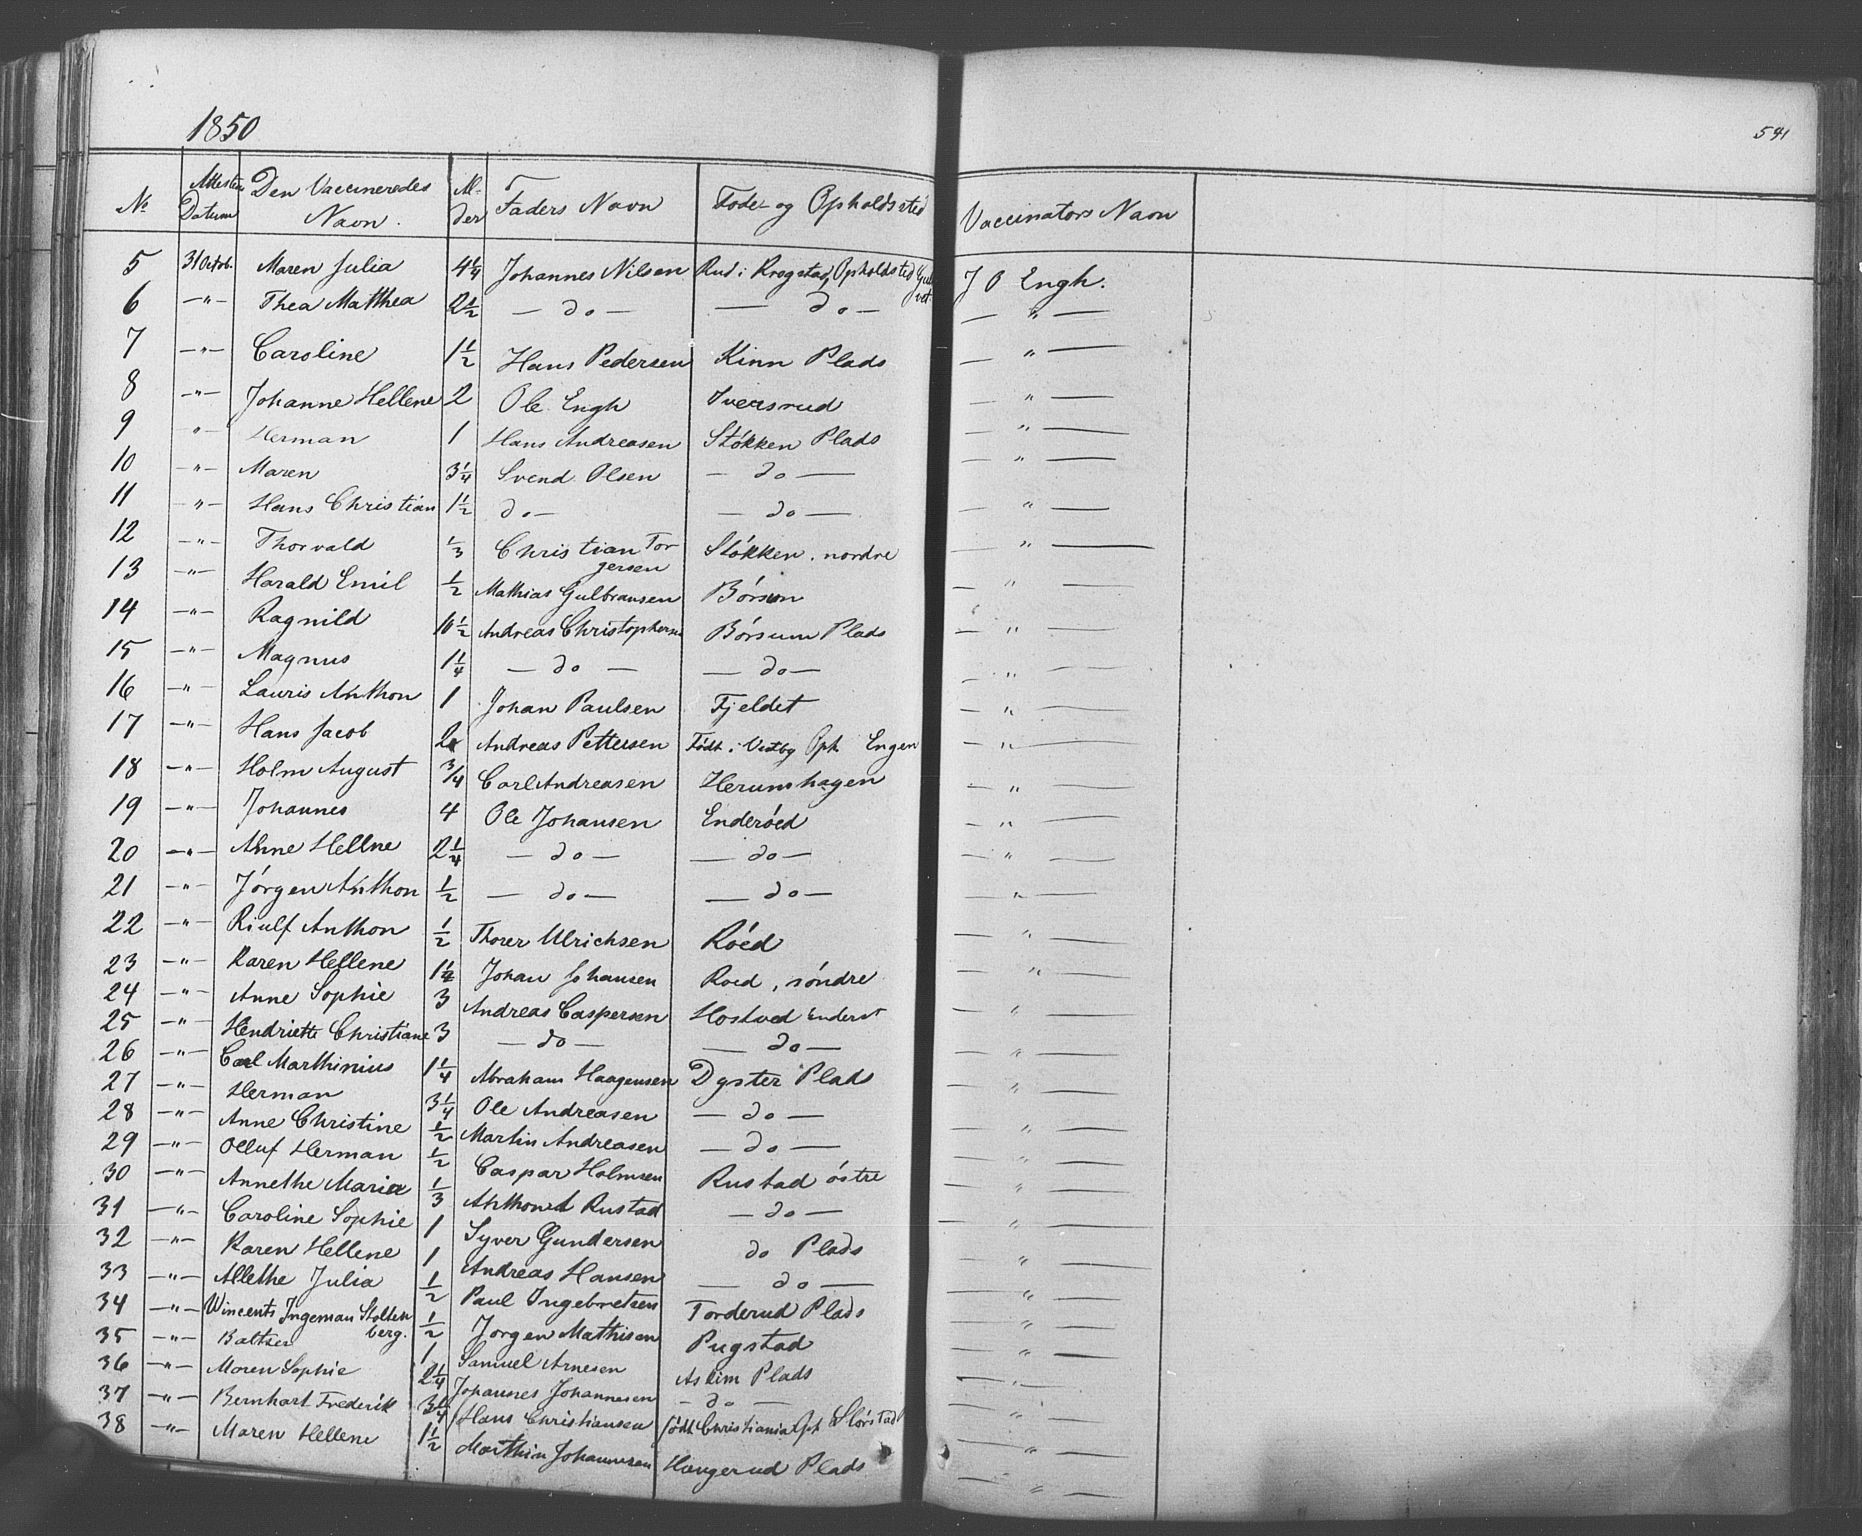 1850
541
No Attestens Datum Den Vaccineredes Navn. Alder Faders Navn Føde- og Opholdssted Vaccinators Navn
5 31 Octob. Maren Julia 4 1/4 Johannes Nilsen Rud i Krogstad, Opholdsted J O Engh.
6 —"— Thea Matthea 2 1/2 — do — — do — — " —
7 —"— Caroline 1 1/2 Hans Pedersen Kinn Plads — " —
8 —"— Johanne Hellene 2 Ole Engh Iversrud — " —
9 " Herman 1 Hans Andreasen Støkken Plads — " —
10 —"— Maren 3 1/4 Svend Olsen — do — — " —
11 —"— Hans Christian 1 1/2 do — — do — — " —
12 —"— Thorvald 1/3 Christian Torgersen Støkken, nordre — " —
13 —"— Harald Emil 1/2 Mathias Gulbransen Børsum — " —
14 —"— Ragnild 10 1/2 Andreas Christophersen Børsum Plads — " —
15 —"— Magnus 1 1/4 — do — — do — — " —
16 —"— Lauris Anthon 1 Johan Paulsen Fjeldet — " —
17 —"— Hans Jacob 2 Andreas Pettersen Født i Vestby Oph Engen — " —
18 —"— Holm August 3/4 Carl Andreasen Herumshagen — " —
19 —"— Johannes 4 Ole Johansen Enderøed — " —
20 —"— Anne Hellne 2 1/4 — do — — do — — " —
21 —"— Jørgen Anthon 1/2 — do — — do — — " —
22 —"— Riulf Anthon 1/2 Thorer Ulrichsen Røed — " —
23 —"— Karen Hellene 1 1/2 Johan Johansen Roed, søndre — " —
24 —"— Anne Sophie 3 Andreas Caspersen Hostved — " —
25 —"— Hendriette Christiane 3 — do — — do — — " —
26 —"— Carl Marthinius 1 1/4 Abraham Haagensen Dyster Plads — " —
27 —"— Herman 3 1/4 Ole Andreasen — do — — " —
28 —"— Anne Christine 1/2 Martin Andreasen — do — — " —
29 —"— Olluf Herman 1/2 Caspar Holmsen Rustad østre — " —
30 —"— Annethe Maria 1/3 Anthon A Rustad — do — — " —
31 —"— Caroline Sophie 1 Syver Gundersen do Plads — " —
32 —"— Karen Hellene 1 Andreas Hansen — do — — " —
33 —"— Allethe Julia 1/2 Paul Ingebretsen Torderud Plads — " —
34 —"— Wincents Ingeman Stoltenberg. 1/2 Jørgen Mathisen Pugstad — " —
35 —"— Baltser 1 Samuel Arnesen Askim Plads — " —
36 —"— Maren Sophie 2 1/4 Johannes Johannesen — do — — " —
37 —"— Bernhart Frederik 3/4 Hans Christiansen født Christiania Oph Slørstad — " —
38 —"— Maren Hellene 1 1/2 Marthin Johannesen Haugerud Plads — " —